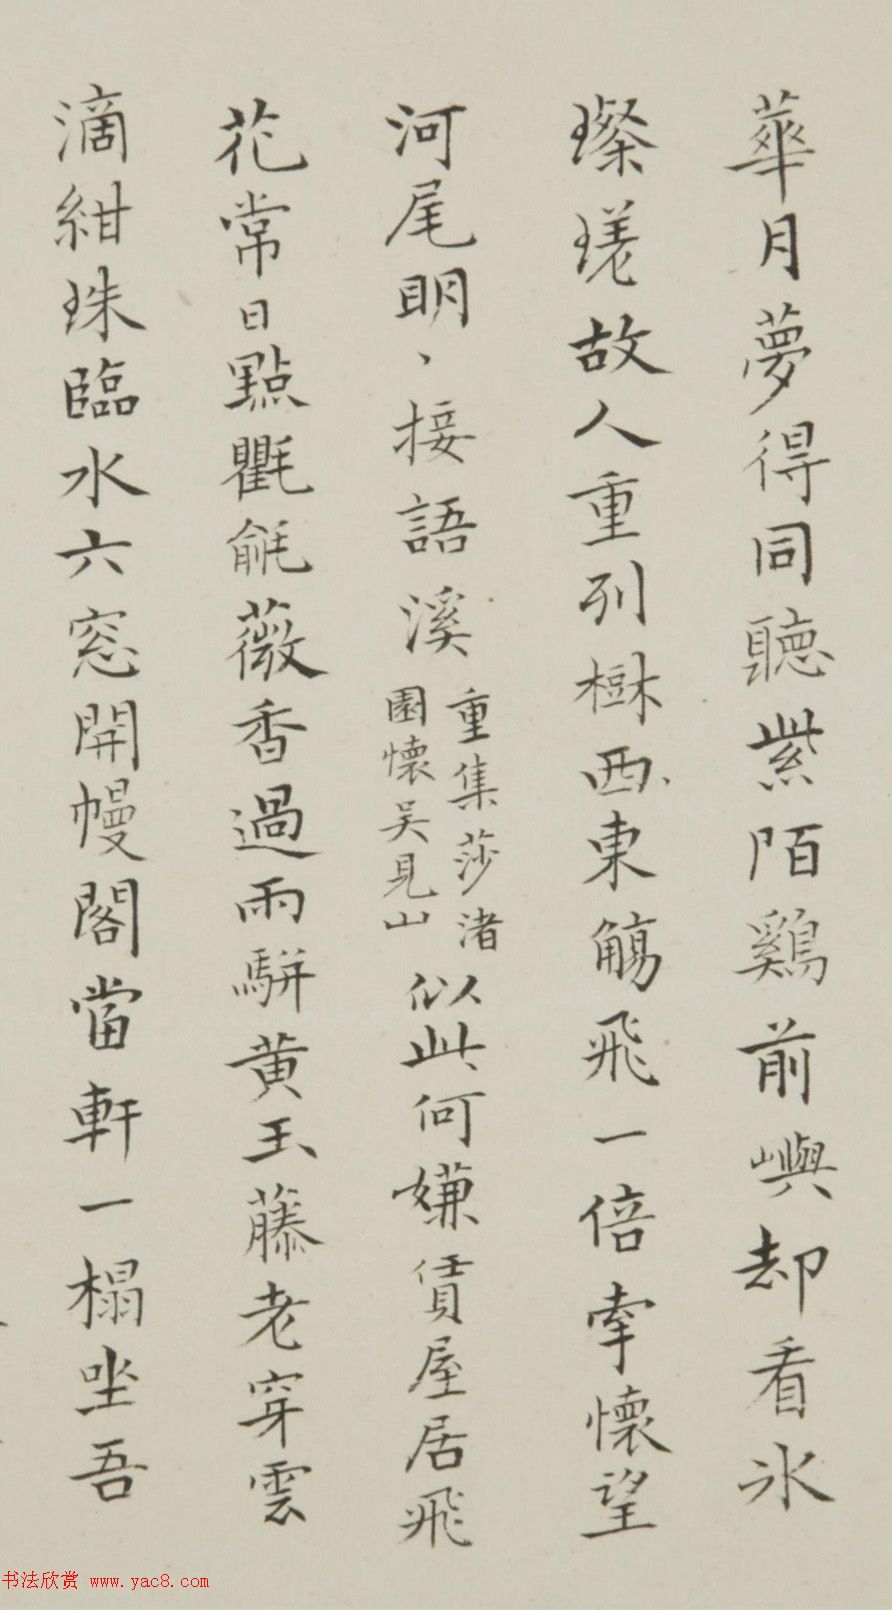 華月夢得同聽紫陌鷄前嶼却看氷
璨瑳故人重列樹西東觴飛一倍牽懷望
河尾明、接語溪
重集莎渚
園懷吴見山
似此何嫌賃屋居飛
花常日點氍毹薇香過雨駢黄玉藤老穿雲
滴紺珠臨水六窓開幔閣當軒一榻坐吾
书法欣赏 www.yac8.com